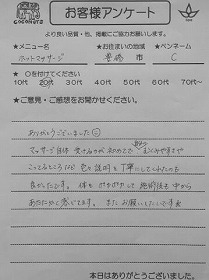 COCONUTS
お客様アンケート
より良い品質・他、掲載にご協力お願いします。
★メニュー名
★お住まいの地域
★ペンネーム
ホットマッサージ
豊橋 市
C
★ ○を付けてください
10代 20代 30代 40代 50代 60代 70代～
★ご意見・ご感想をお聞かせください。
ありがとうございました
マッサージ自体 受けるのが初めてで むくみやすさや
こってるところなど 色々説明も丁寧にしてくれたのも
良かったです。体も ポカポカして 施術後も 中から
あたたかく感じてます。またお願いしたいです
本日はありがとうございました。